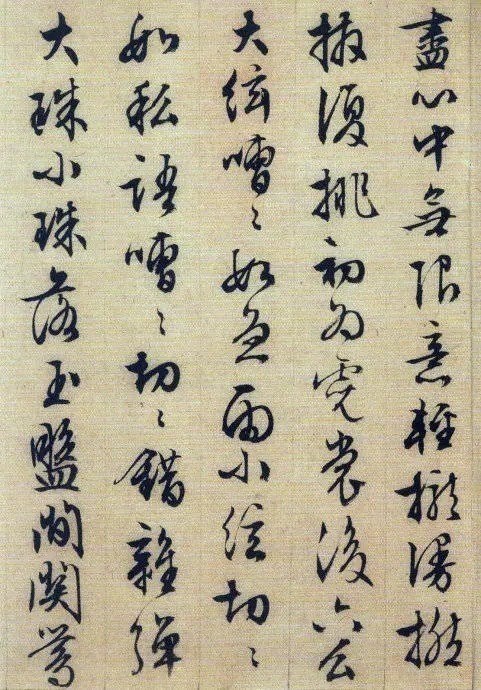 盡心中無限意輕攏漫撚
撥復挑初為霓裳後六幺
大絃嘈〻如急雨小絃切〻
如私語嘈〻切〻錯雜彈
大珠小珠落玉盤間關鶯